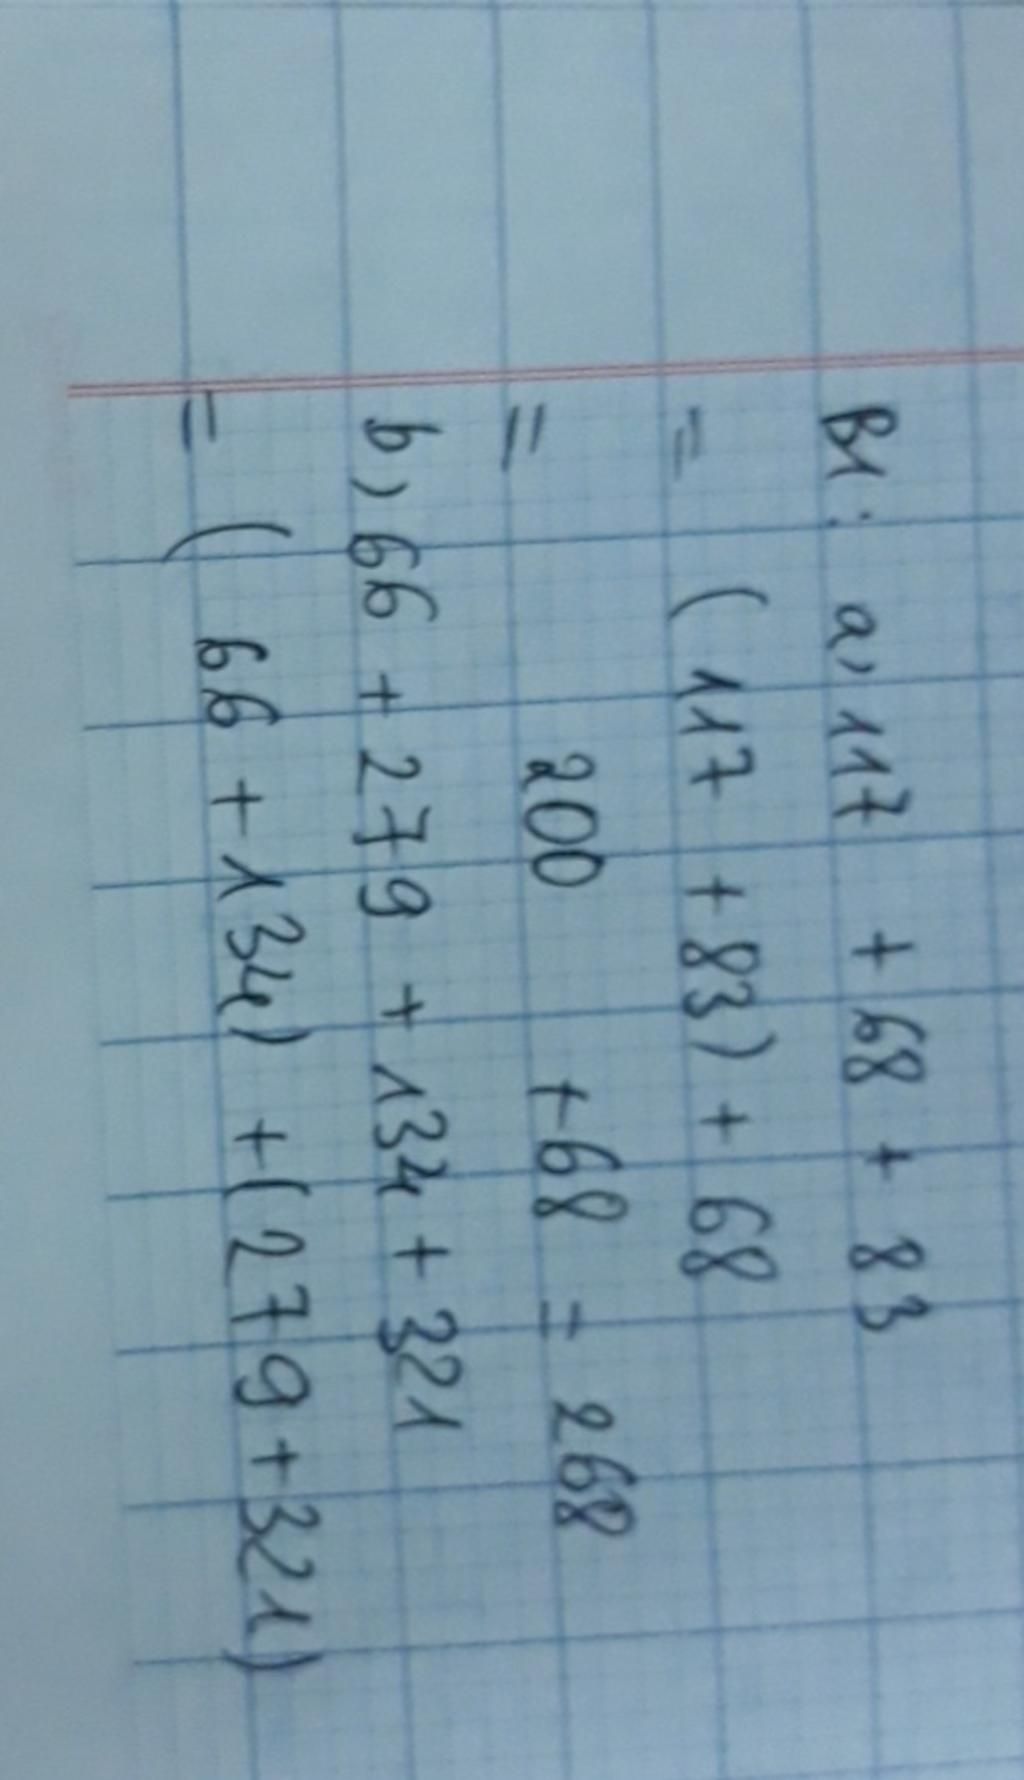 B1: a, 117 + 68 + 83
= (117 + 83) + 68
= 200 + 68 = 268
b, 66 + 279 + 134 + 321
= (66 + 134) + (279 + 321)